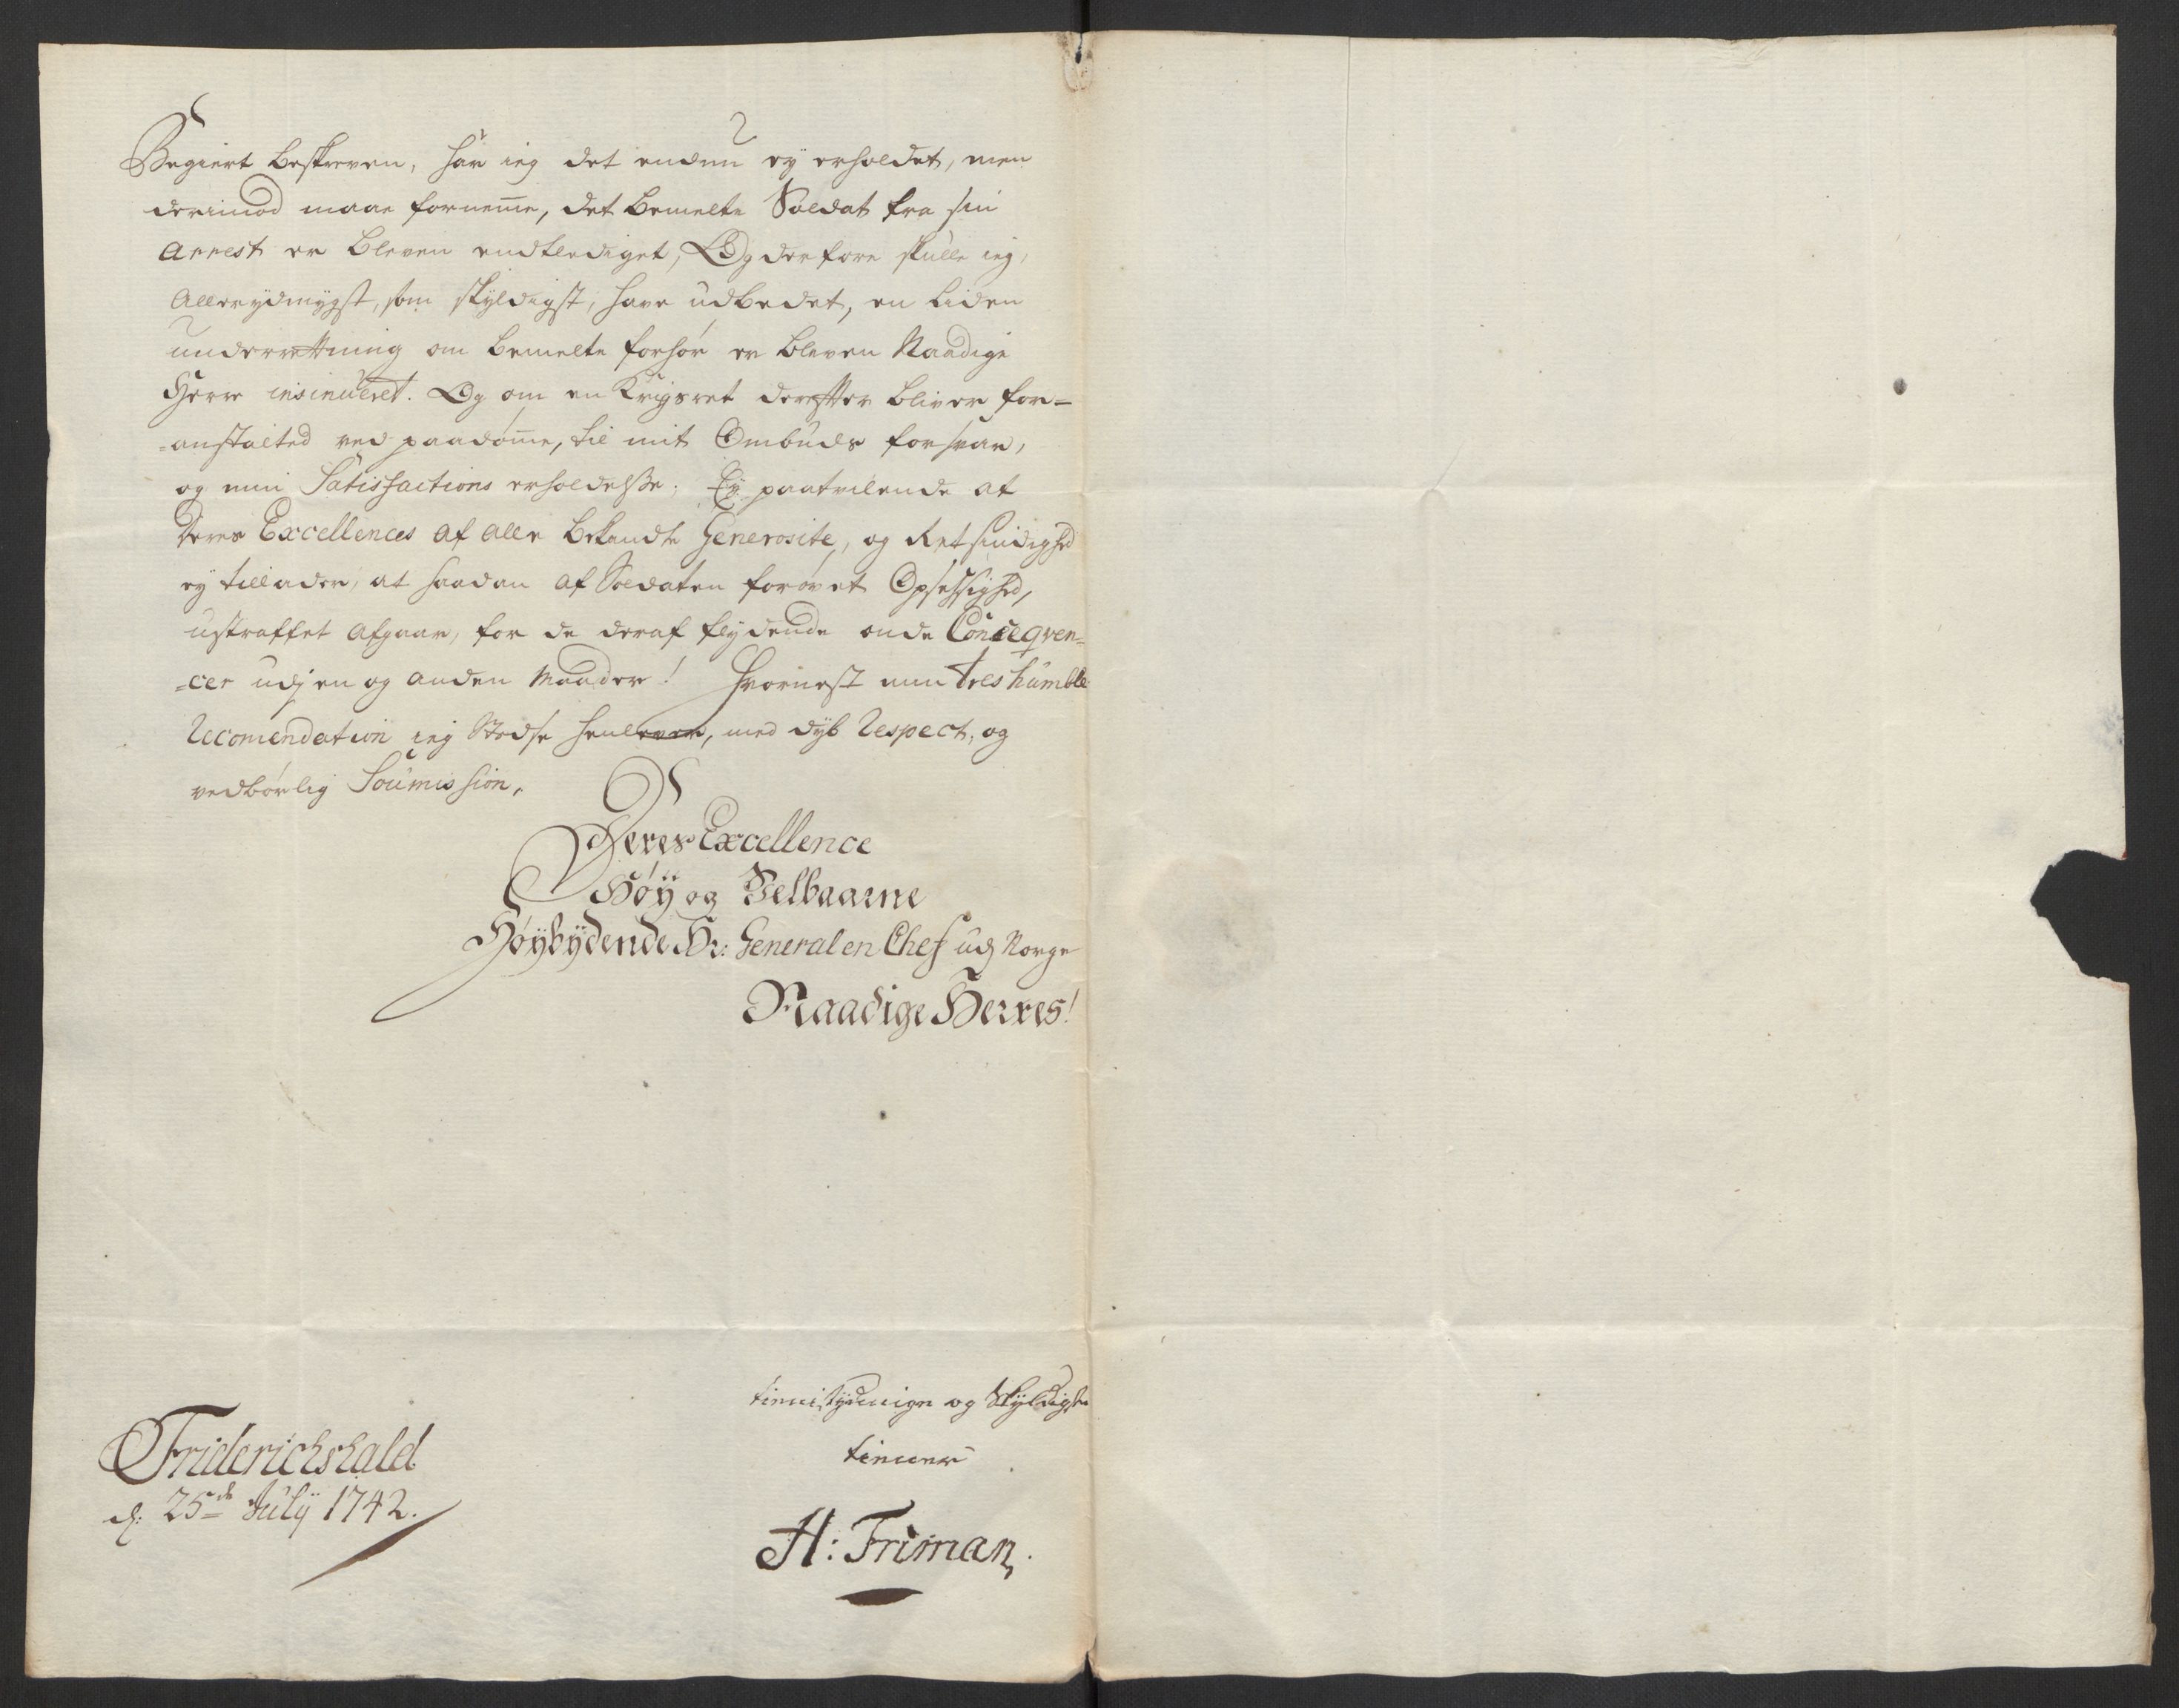 Begiert beskreven, har ieg det endnu ey erholdet, men
derimod maae fornem̄e, det bemelte Soldat fra sin
Arrest er bleven endtlediget, Og derfore skulle ieg,
Allerydmygst, som skyldigst, have udbedet, en liden
underrettning om bemelte forhør er bleven Naadige
Herre insinueret. Og om en Krigsret derefter bliver for=
=anstalted ved paadøm̄e, til mit Ombuds forsvar,
og min Satisfactions erholdelsse; Ey paatvilende at
Deres Excellences af alle bekandte Generosite, og Retsindighed
ey tillader, at saadan af Soldaten forøvet Opsetsighed,
ustraffet afgaar, for de deraf flydende onde Conseqven=
=cer udj en og anden Maader! Hvornest min tres humble
Recomendation ieg stedse henlever, med dyb Respect, og
vedbørlig Soumission,
Deres Excellence
Høÿ og Velbaarne
Høybÿdende Hr: General en Chef udj Norge
Naadige Herres!
tienistydmige og Skyldigste
tiener
Friderichshald
d: 25de Julÿ 1742.
H: Friman,